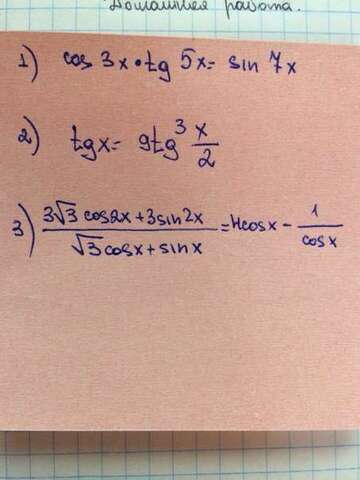 Домашняя работа.
1) cos 3x • tg 5x = sin 7x
2) tgx = 9tg³ x/2
3) (3√3 cos2x + 3sin2x)/(√3cosx + sinx) = 4cosx - 1/cosx